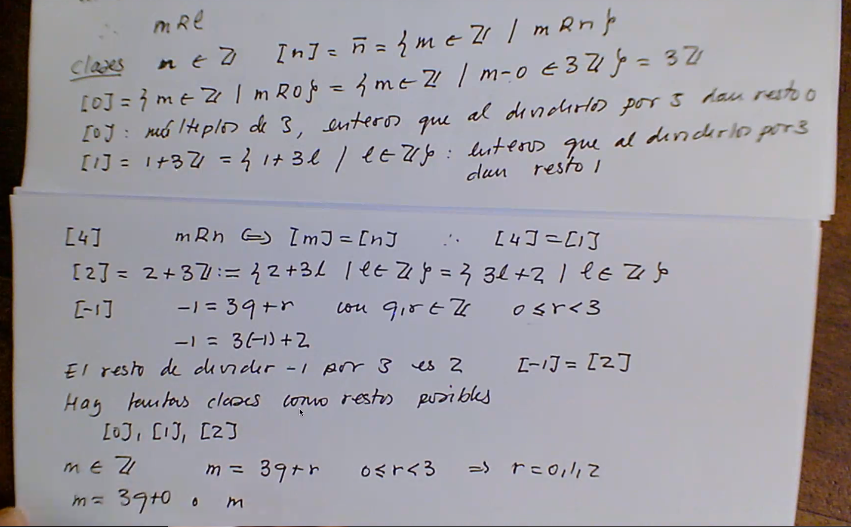 ∴ mRl
Clases n ∈ ℤ [n] = n̄ = { m ∈ ℤ / mRn }
[0] = { m ∈ ℤ / mR0 } = { m ∈ ℤ / m-0 ∈ 3ℤ } = 3ℤ
[0] : múltiplos de 3, enteros que al dividirlos por 3 dan resto 0
[1] = 1+3ℤ = { 1+3l / l ∈ ℤ } : enteros que al dividirlo por 3
dan resto 1
[4] mRn ⇔ [m] = [n] ∴ [4] = [1]
[2] = 2+3ℤ := { 2+3l / l ∈ ℤ } = { 3l+2 / l ∈ ℤ }
[-1] -1 = 3q+r con q,r ∈ ℤ 0 ≤ r < 3
-1 = 3(-1)+2
El resto de dividir -1 por 3 es 2 [-1] = [2]
Hay tantas clases como restos posibles
[0], [1], [2]
m ∈ ℤ m = 3q+r 0 ≤ r < 3 ⇒ r = 0,1,2
m = 3q+0 o m